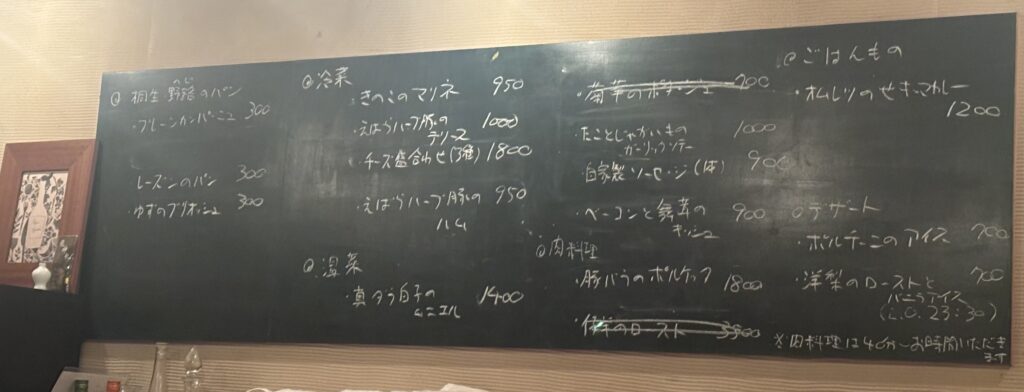 ◎桐生 野路のパン
のじ
・プレーンカンパーニュ 300
レーズンのパン 300
・ゆずのブリオッシュ 300
◎冷菜
・きのこのマリネ 950
・えばらハーブ豚の
テリーヌ 1000
・チーズ盛合わせ(3種) 1800
・えばらハーブ豚の 950
ハム
◎温菜
・真ダラ白子の 1400
ムニエル
・菊芋のポタージュ 700
・たことじゃがいもの 1000
ガーリックソテー
・自家製ソーセージ(1本) 900
・ベーコンと舞茸の 900
キッシュ
◎肉料理
・豚バラのポルケッタ 1800
のロースト 3300
◎ごはんもの
・オムレツのせキーマカレー
1200
○デザート
・ポルチーニのアイス 700
・洋梨のローストと 700
バニラアイス
(L.O. 23:30)
※肉料理は40分〜お時間いただき
ます